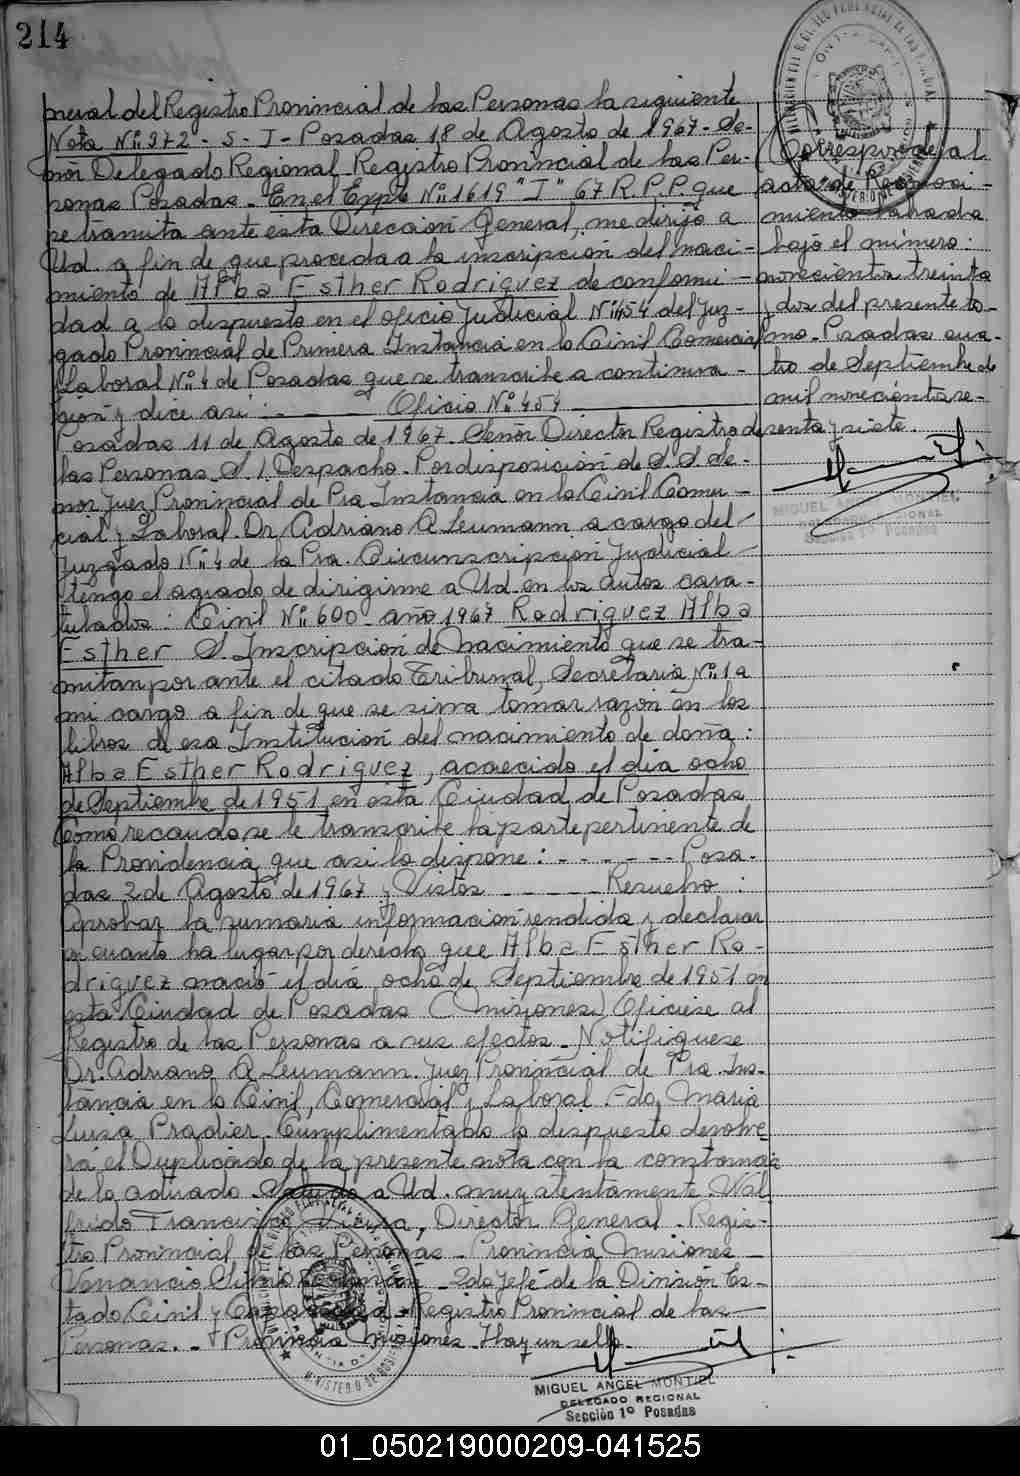 214
neral del Registro Provincial de las Personas la siguiente
Nota Nº 972 - S - I - Posadas 18 de Agosto de 1967 - Se-
ñor Delegado Regional Registro Provincial de las Per-
sonas Posadas - En el Expte Nº 1619 "I" 67 R.P.P. que
se tramita ante esta Dirección General, me dirijo a
Ud. a fin de que proceda a la inscripción del naci-
miento de Alba Esther Rodriguez de conformi-
dad a lo dispuesto en el oficio Judicial Nº 454 del Juz-
gado Provincial de Primera Instancia en lo Civil Comercial
y Laboral Nº 4 de Posadas que se transcribe a continua-
ción y dice así: - Oficio Nº 454
Posadas 11 de Agosto de 1967. Señor Director Registro de
las Personas S. / Despacho - Por disposición de S.S Se-
ñor Juez Provincial de Pra Instancia en lo Civil Comer-
cial y Laboral Dr Adriano A Leumann a cargo del
Juzgado Nº 4 de la Pra. Circunscripción Judicial
tengo el agrado de dirigirme a Ud. en los autos cara-
tulados: Civil Nº 600 - año 1967 Rodriguez Alba
Esther S. Inscripción de Nacimiento que se tra-
mitan por ante el citado Tribunal, Secretaria Nº 1 a
mi cargo a fin de que se sirva tomar razón en los
libros de esa Institución del nacimiento de doña:
Alba Esther Rodriguez, acaecido el día ocho
de Septiembre de 1951 en esta Ciudad de Posadas
Como recaudo se le transcribe la parte pertinente de
la Providencia que asi lo dispone: - - - - - - Posa-
das 2 de Agosto de 1967 y Vistos - - - - - Resuelvo:
Aprobar la sumaria información rendida y declarar
en cuanto ha lugar por derecho que Alba Esther Ro-
driguez nació el día ocho de Septiembre de 1951 en
esta Ciudad de Posadas (Misiones) Ofíciese al
Registro de las Personas a sus efectos - Notifiquese
Dr. Adriano A Leumann. Juez Provincial de Pra Ins-
tancia en lo Civil, Comercial y Laboral Fdo, Maria
Luisa Pradier. Cumplimentado lo dispuesto devolve-
rá el Duplicado de la presente nota con la constancia
de lo actuado. Saludo a Ud. muy atentamente. Wal
frido Francisco, Director General - Regis-
tro Provincial de las Personas - Provincia Misiones -
Venancio Silvio - 2do Jefe de la División Es-
tado Civil y Capacidad - Registro Provincial de las
Personas. - Provincia Misiones. Hay un sello.
MIGUEL ANGEL MONTIEL
DELEGADO REGIONAL
Sección 1º Posadas
Corresponde al
acta de Reconoci-
miento labrada
bajo el número:
novecientos treinta
y dos del presente to-
mo. Posadas cua-
tro de Septiembre de
mil novecientos se-
senta y siete.
MIGUEL ANGEL MONTIEL
DELEGADO REGIONAL
Sección 1º Posadas
01_050219000209-041525